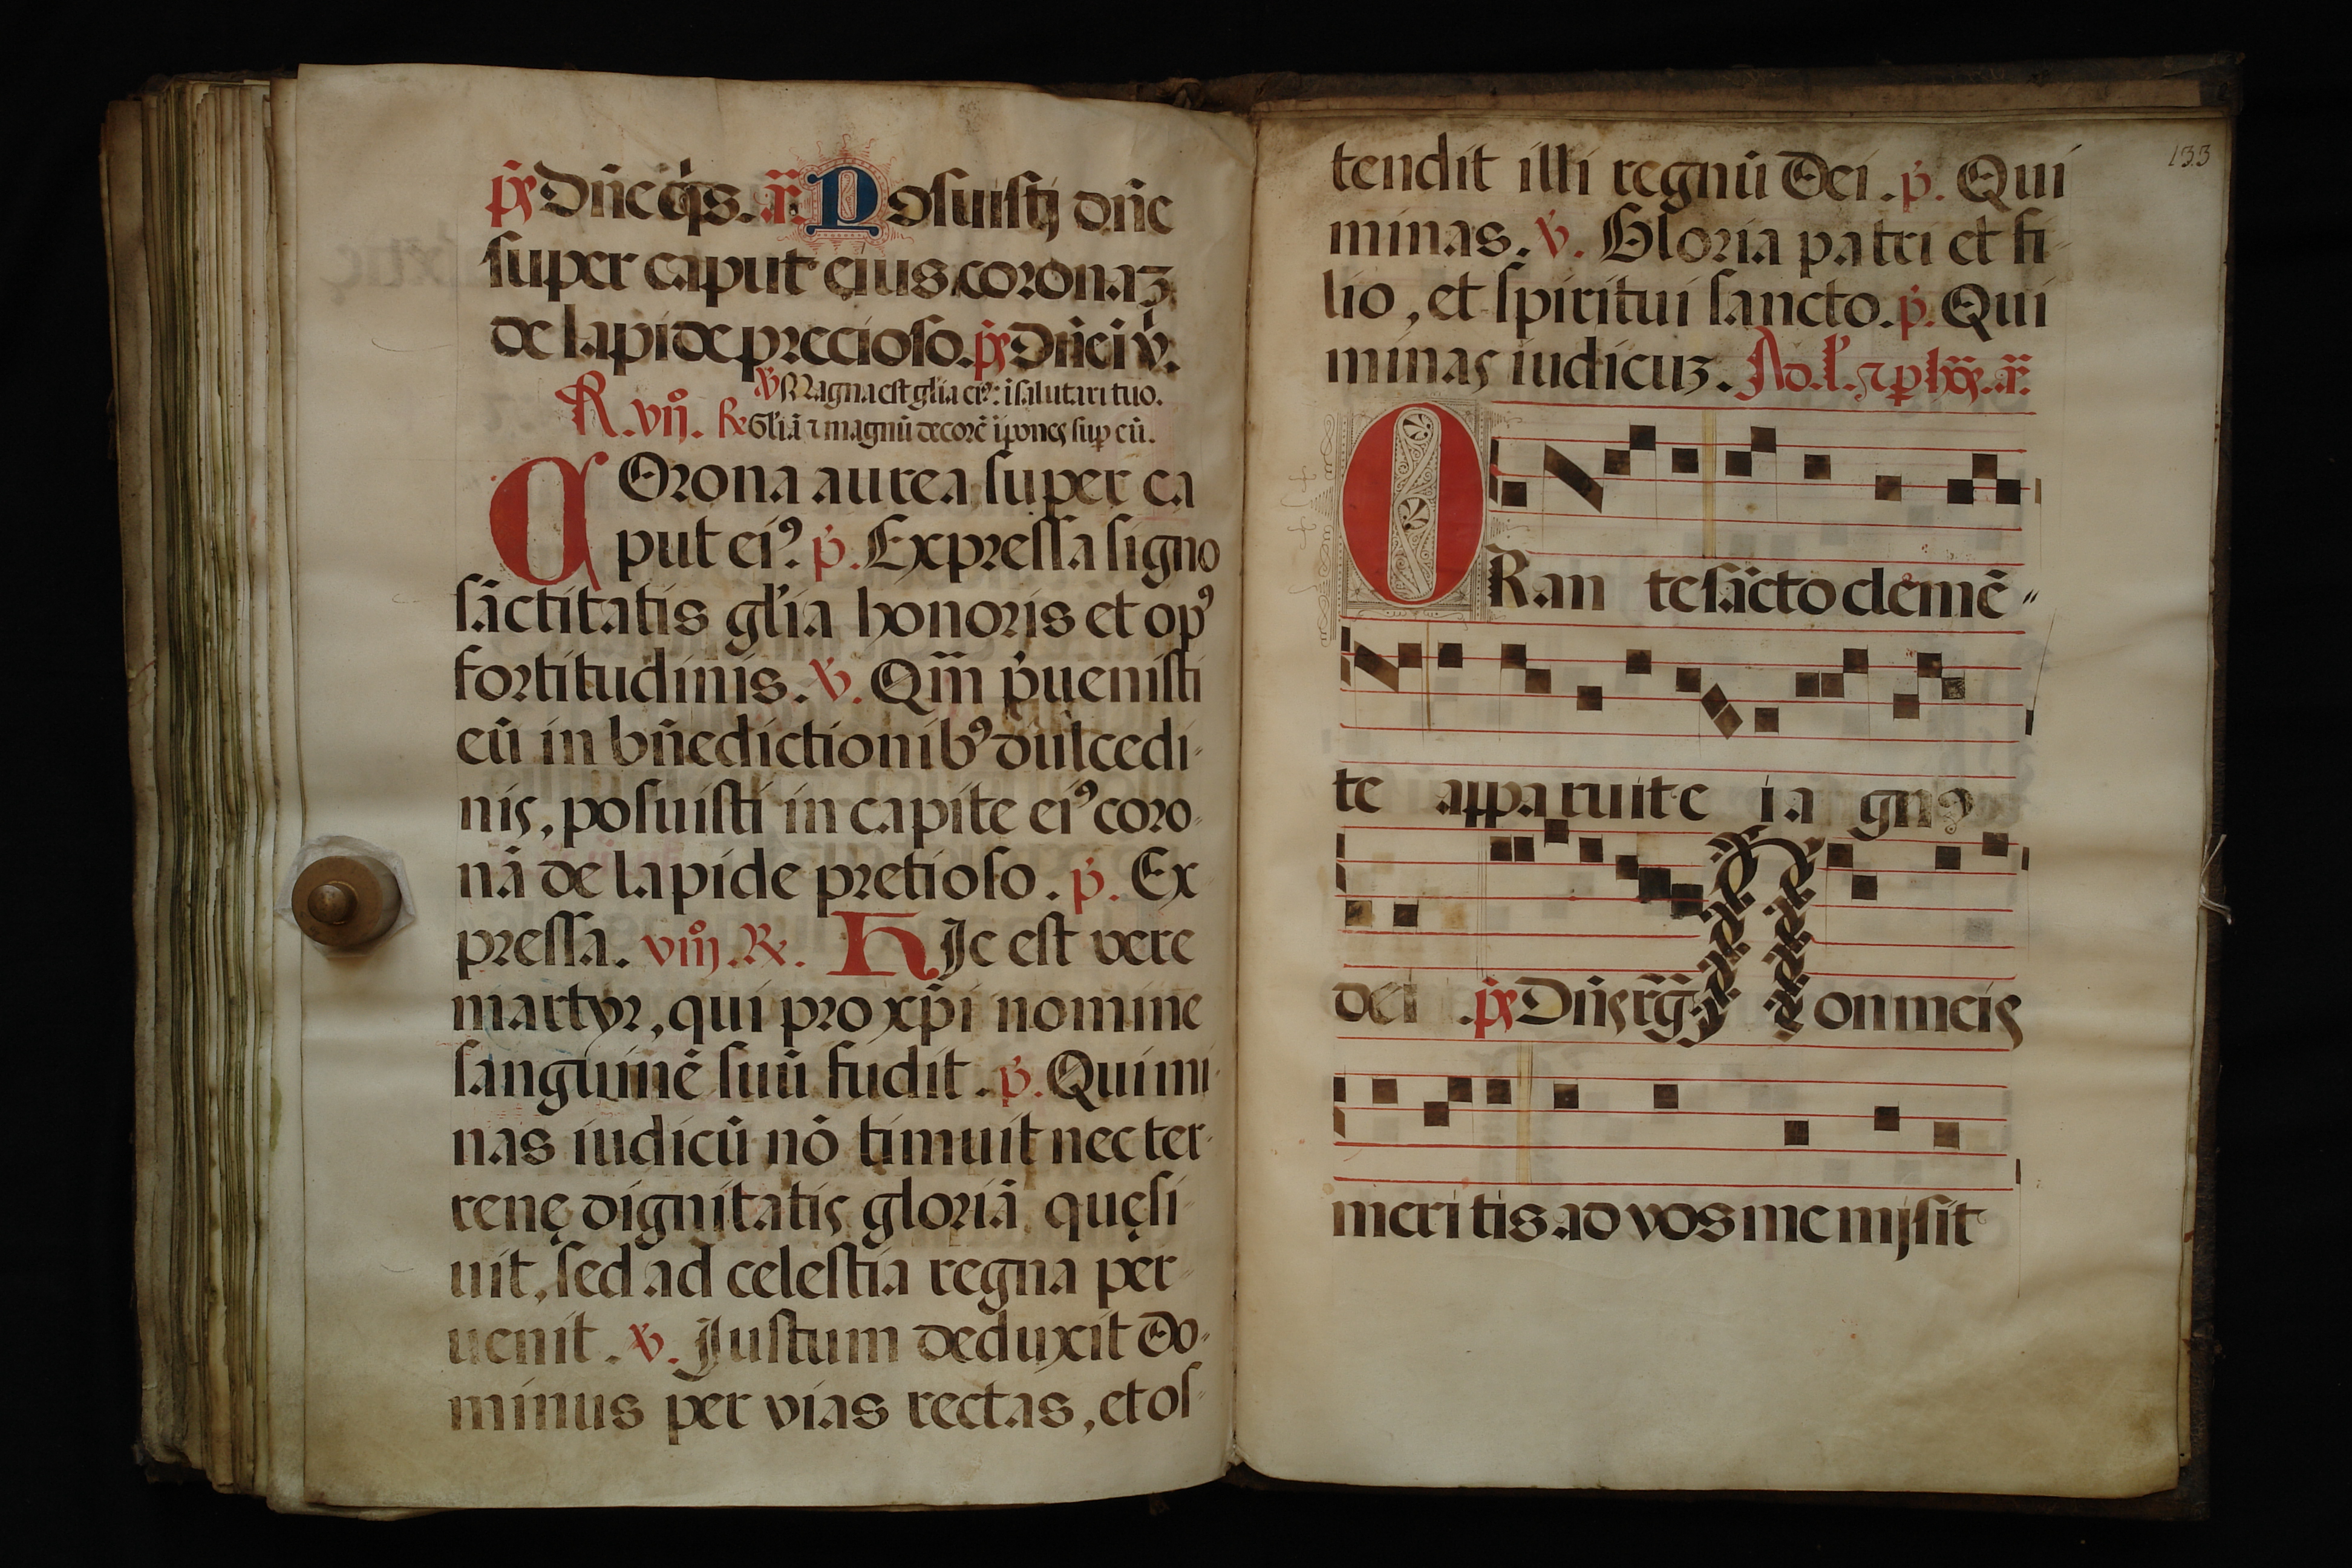 p̄s Dñe q̇s. añ. Posuistj dñe
super caput eius coronaʒ
de lapide precioso. p̄s Dñe i v̇.
℣ Magna est gl'ia ei⁹: ĩ salutari tuo.
R. vij. ℟ Gl'iã ⁊ magnũ decorẽ ĩpones sup eũ.
COrona aurea super ca
put ei⁹. p̄. Expressa signo
sãctitatis gl'ia honoris et op⁹
fortitudinis. ℣. Qm̃ p̄uenisti
eũ in bñedictionib⁹ dulcedi-
nis, posuisti in capite ei⁹ coro-
nã de lapide pretioso. p̄. Ex
pressa. viij. ℟. HIc est vere
martyr, qui pro xp̄i nomine
sanguinẽ suũ fudit. p̄. Qui mi-
nas iudicũ nõ timuit nec ter-
renę dignitatis gloriã quęsi-
uit, sed ad celestia regna per-
uenit. ℣. Justum deduxit do-
minus per vias rectas, et os-
133
tendit illi regnũ dei. p̄. Qui
minas. ℣. Gloria patri et fi-
lio, et spiritui sancto. p̄. Qui
minas iudicuʒ. Ad. l'. ⁊ p hõs. añ.
ORan te sãcto clemẽ-
te apparuit e i a gn⁹
dei. p̄s Dñs rg̃. Non meis
meritis ad vos me mjsit